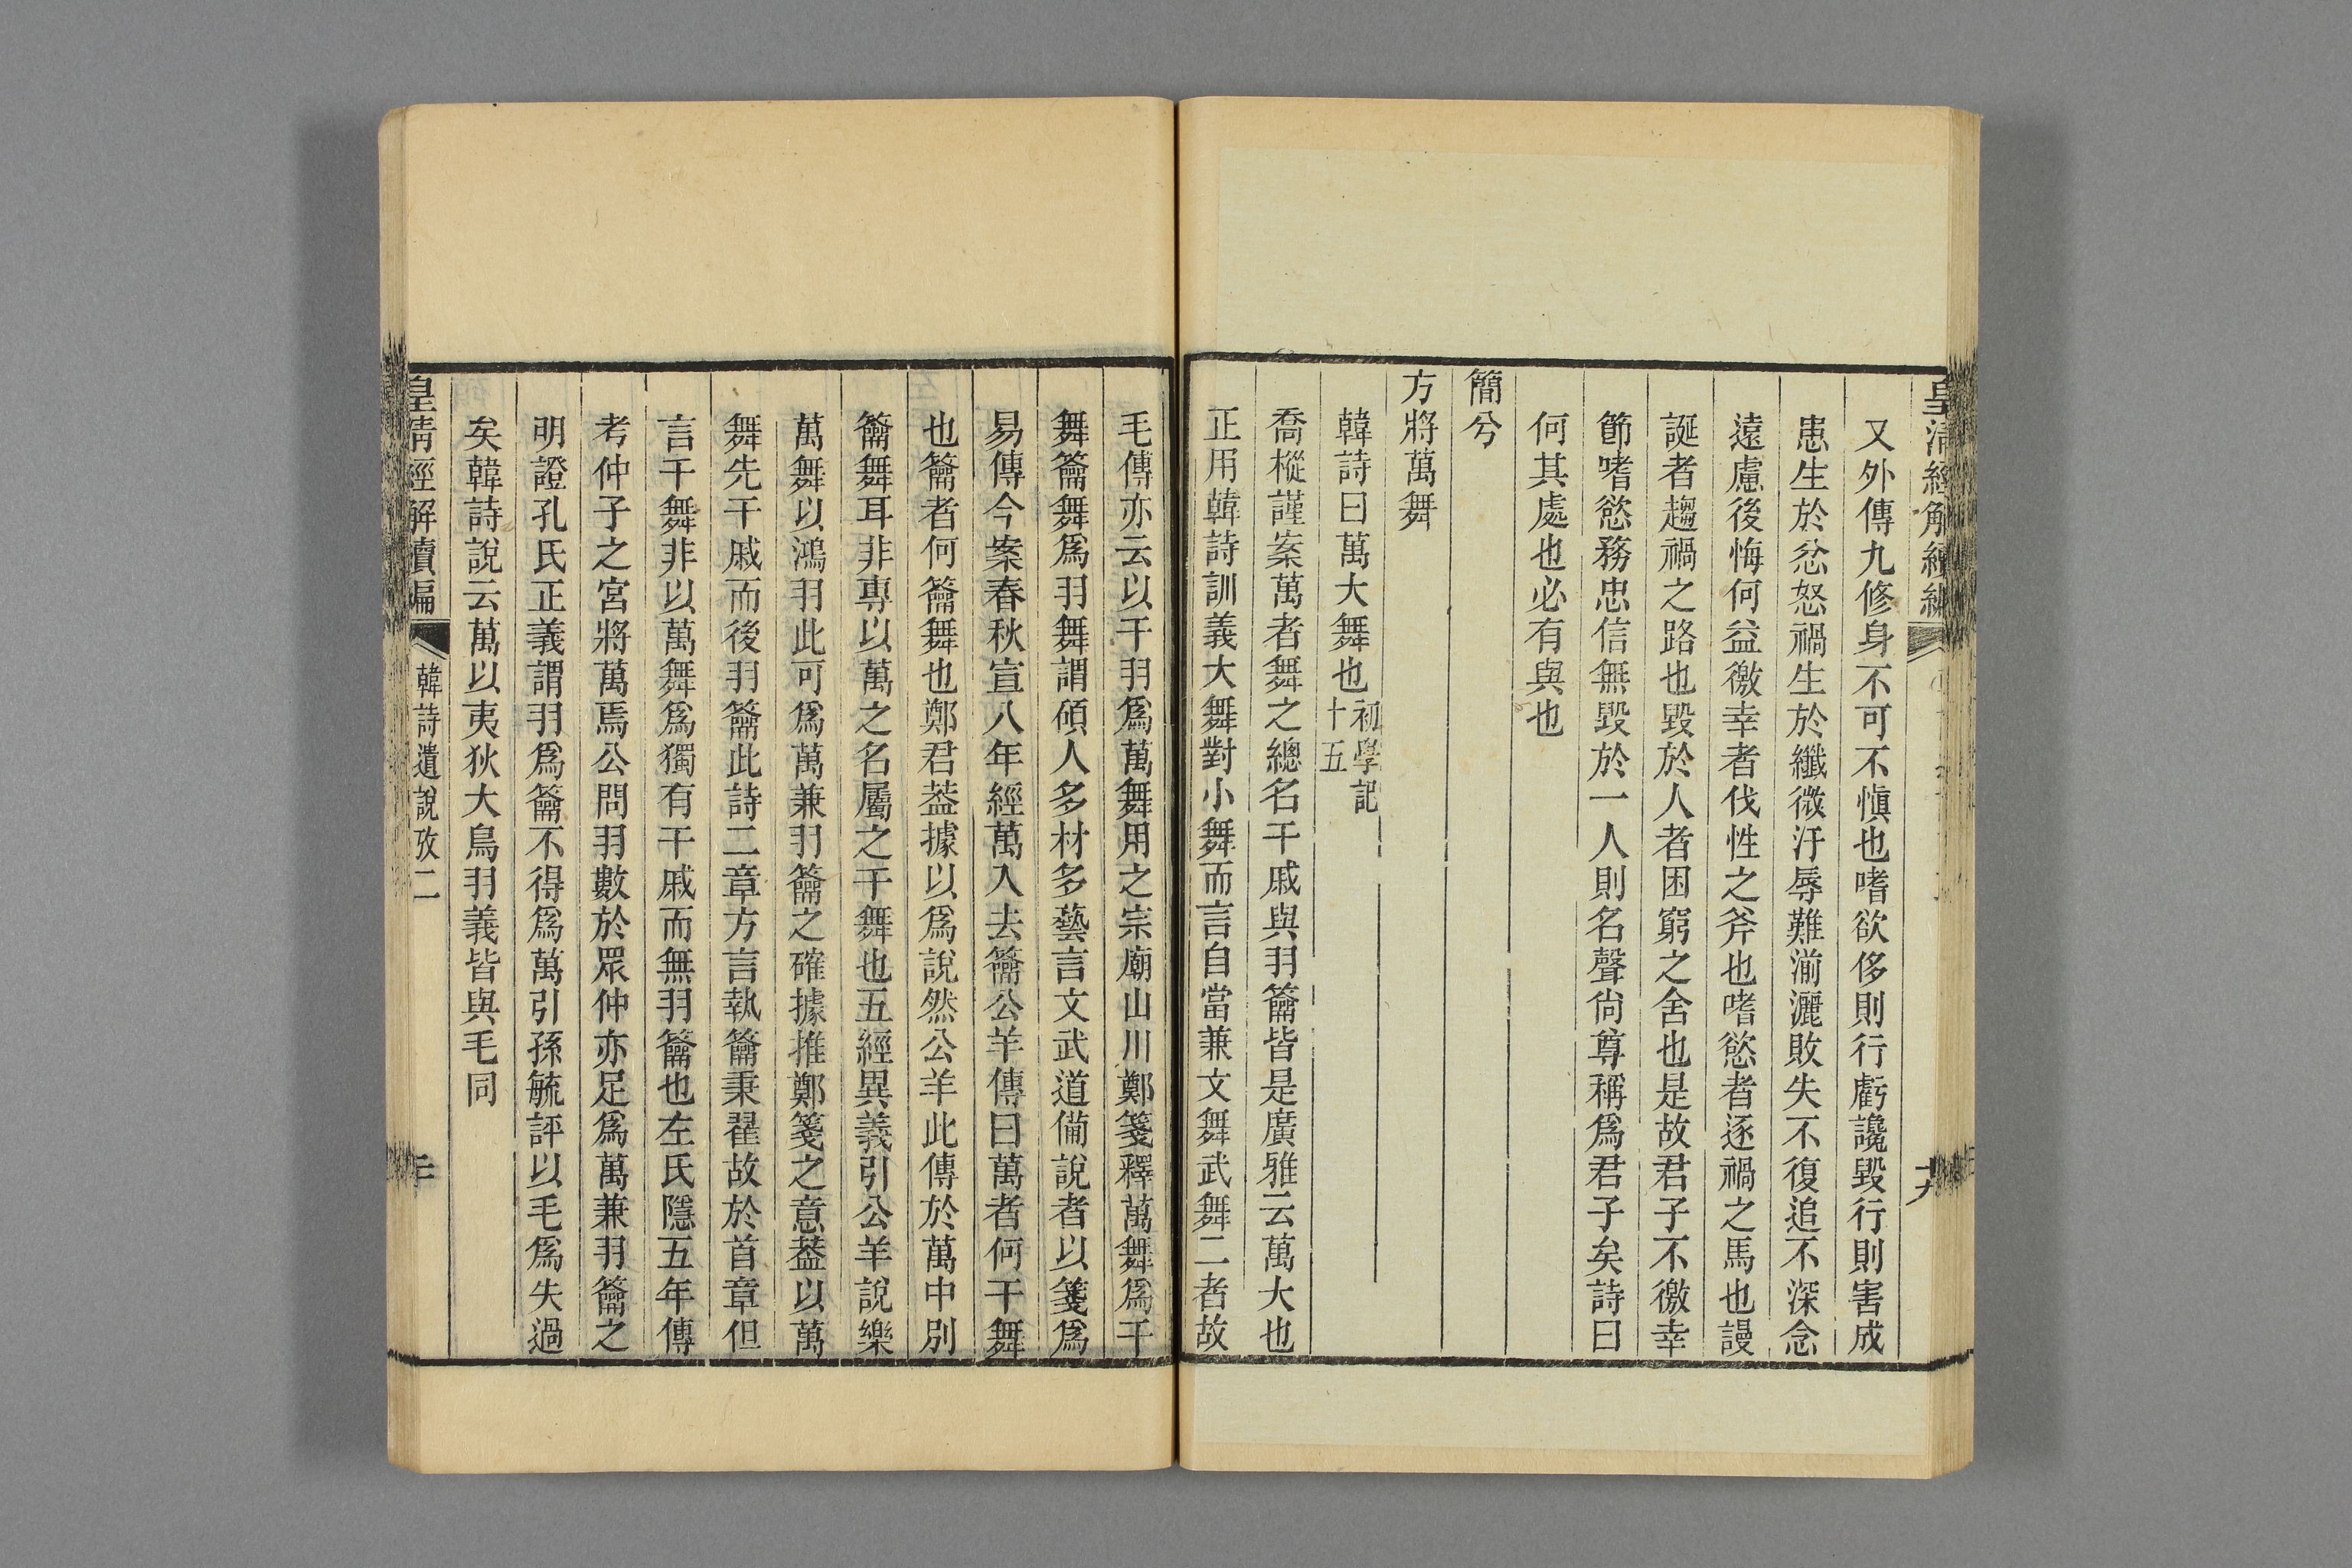 皇清經解續編
十九
又外傳九修身不可不愼也嗜欲侈則行虧讒毀行則害成
患生於忿怒禍生於纖微汙辱難湔灑敗失不復追不深念
遠慮後悔何益徼幸者伐性之斧也嗜慾者逐禍之馬也謾
誕者趨禍之路也毀於人者困窮之舍也是故君子不徼幸
節嗜慾務忠信無毀於一人則名聲尙尊稱爲君子矣詩曰
何其處也必有與也
簡兮
方將萬舞
韓詩曰萬大舞也初學記十五
喬樅謹案萬者舞之總名干戚與羽籥皆是廣雅云萬大也
正用韓詩訓義大舞對小舞而言自當兼文舞武舞二者故
毛傳亦云以干羽爲萬舞用之宗廟山川鄭箋釋萬舞爲干
舞籥舞爲羽舞謂碩人多材多藝言文武道備說者以箋爲
易傳今案春秋宣八年經萬入去籥公羊傳曰萬者何干舞
也籥者何籥舞也鄭君葢據以爲說然公羊此傳於萬中別
籥舞耳非專以萬之名屬之干舞也五經異義引公羊說樂
萬舞以鴻羽此可爲萬兼羽籥之確據推鄭箋之意葢以萬
舞先干戚而後羽籥此詩二章方言執籥秉翟故於首章但
言干舞非以萬舞爲獨有干戚而無羽籥也左氏隱五年傳
考仲子之宮將萬焉公問羽數於眾仲亦足爲萬兼羽籥之
明證孔氏正義謂羽爲籥不得爲萬引孫毓評以毛爲失過
矣韓詩說云萬以夷狄大鳥羽義皆與毛同
皇清經解續編
韓詩遺說攷二